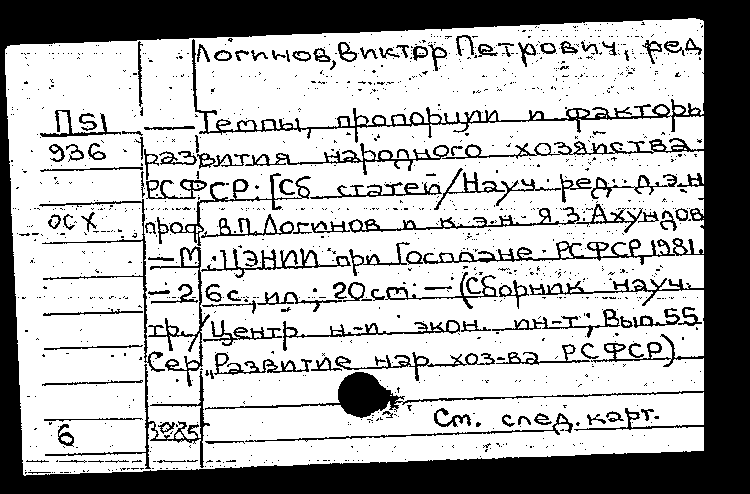 Логинов, Виктор Петрович, ред
П51 — Темпы, пропорции и факторы
936 развития народного хозяйства
РСФСР. [Сб статей/Науч. ред.: д.э.н
ОСХ проф. В.П.Логинов и к.э.н. Я.З.Ахундов
— М.: ЦЭНИИ при Госплане РСФСР, 1981.
— 2 6с., ил.; 20см. — (Сборник науч.
тр./Центр. н.-и. экон. ин-т; Вып.55
Сер. „Развитие нар. хоз-ва РСФСР)
См. след. карт.
6